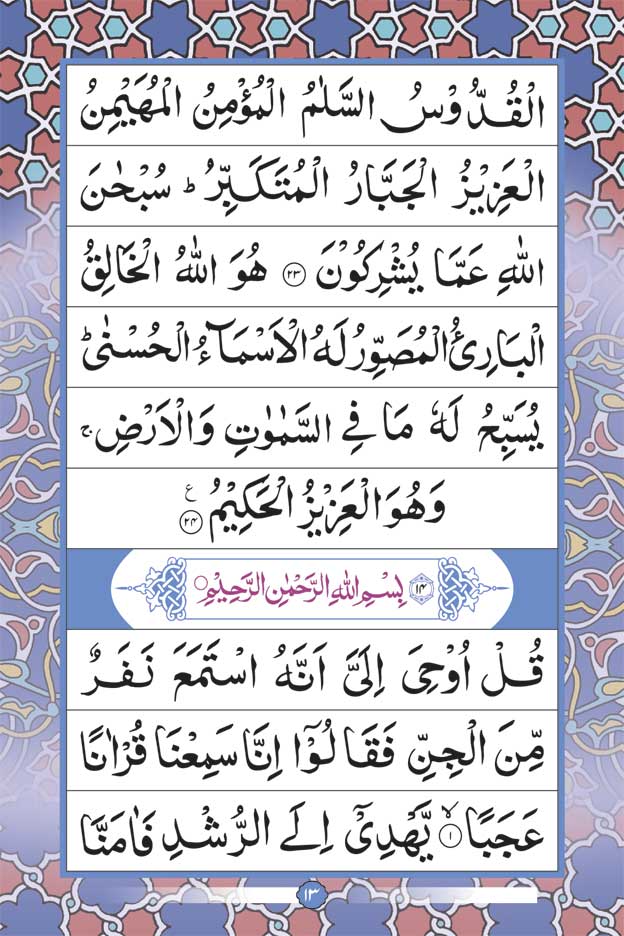 الْقُدُّوْسُ السَّلٰمُ الْمُؤْمِنُ الْمُهَيْمِنُ
الْعَزِيْزُ الْجَبَّارُ الْمُتَكَبِّرُ ؕ سُبْحٰنَ
اللهِ عَمَّا يُشْرِكُوْنَ ﴿۲۳﴾ هُوَ اللهُ الْخَالِقُ
الْبَارِئُ الْمُصَوِّرُ لَهُ الْاَسْمَآءُ الْحُسْنٰى ؕ
يُسَبِّحُ لَهٗ مَا فِي السَّمٰوٰتِ وَالْاَرْضِ ۚ
وَهُوَ الْعَزِيْزُ الْحَكِيْمُ ﴿۲۴﴾ ع
﴿۱۴﴾ بِسْمِ اللهِ الرَّحْمٰنِ الرَّحِيْمِ
قُلْ اُوْحِيَ اِلَيَّ اَنَّهُ اسْتَمَعَ نَفَرٌ
مِّنَ الْجِنِّ فَقَالُوْٓا اِنَّا سَمِعْنَا قُرْاٰنًا
عَجَبًا ﴿۱﴾ ۙ يَّهْدِيْٓ اِلَى الرُّشْدِ فَاٰمَنَّا
۱۳